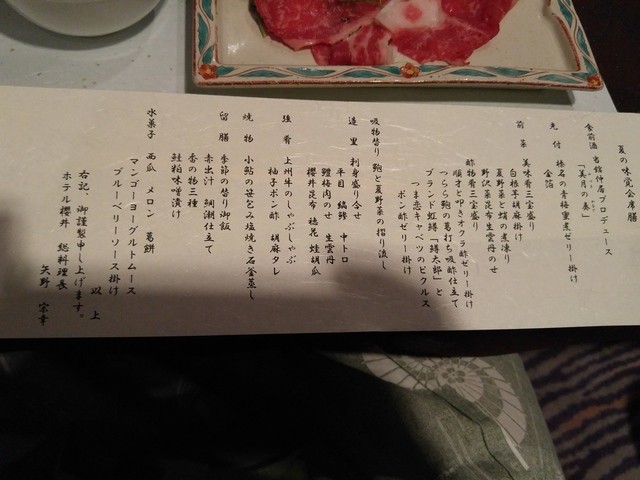 夏の味覚会席膳
食前酒 当館仲居プロデュース
「美月の奏」
先付 榛名の青梅蜜煮ゼリー掛け
金箔
前菜 美味肴三宝盛り
白根芋胡麻掛け
夏野菜と蛸の煮凍り
野沢菜昆布生雲丹のせ
酢物肴三宝盛り
順才と叩きオクラ酢ゼリー掛け
つらら鮑の葛打ち吸酢仕立て
ブランド虹鱒「鱒太郎」と
つま恋キャベツのピクルス
ポン酢ゼリー掛け
吸物替り 鮑と夏野菜の摺り流し
造里 刺身盛り合せ
平目 縞鯵 中トロ
鱧梅肉のせ 生雲丹
櫻井昆布 穂花 蛙胡瓜
強肴 上州牛のしゃぶしゃぶ
柚子ポン酢 胡麻タレ
焼物 小鮎の笹包み塩焼き石釜蒸し
留膳 季節の替り御飯
赤出汁 鯛潮仕立て
香の物三種
鮭粕味噌漬け
水菓子 西瓜 メロン 葛餅
マンゴーヨーグルトムース
ブルーベリーソース掛け
以上
右記、御謹製申し上げます。
ホテル櫻井 総料理長
矢野 宗幸